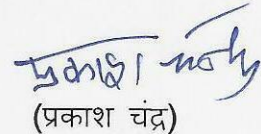 प्रकाश चंद्र
(प्रकाश चंद्र)